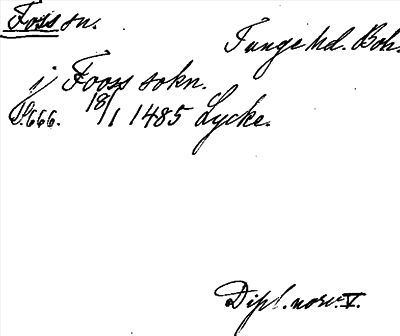 Foss sn.
Tunge hd. Boh.
j Fooss sokn.
S. 666. 18/1 1485 Lycke.
Dipl. norv. V.